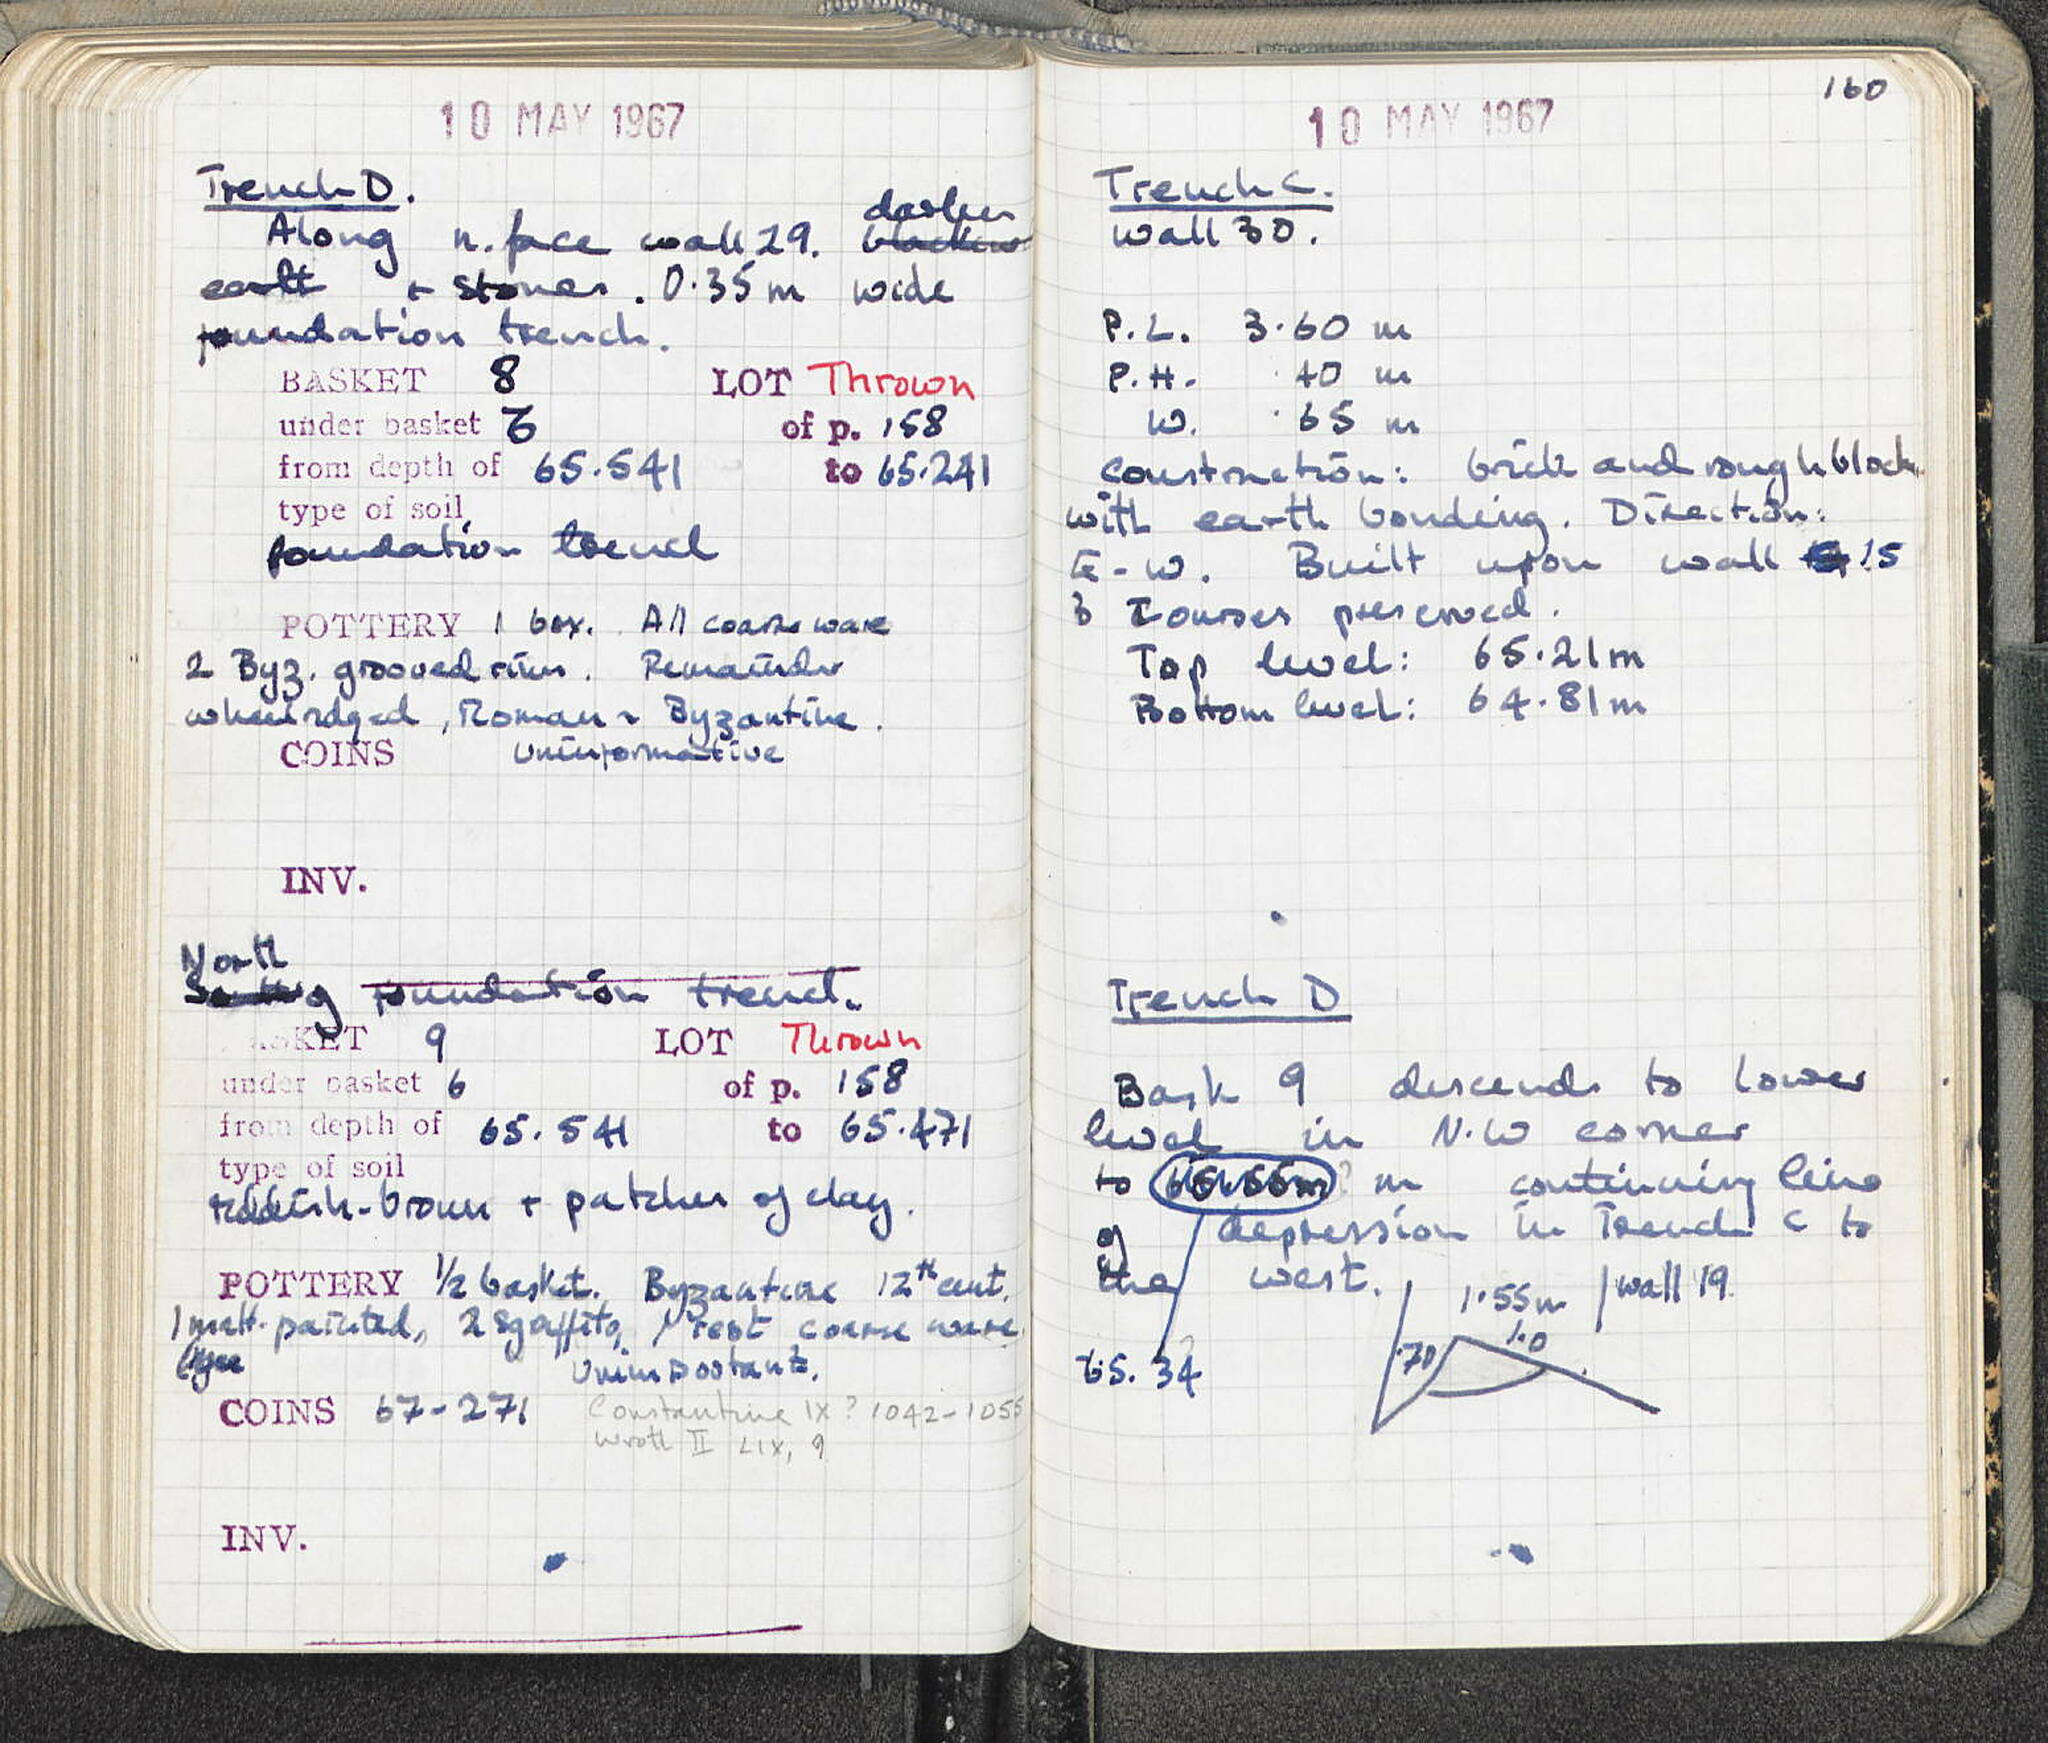 10 MAY 1967
Trench D.
darker
Along n. face wall 29. blackish
earth + stones. 0.35 m wide
foundation trench.
BASKET 8 LOT Thrown
under basket 6 of p. 158
from depth of 65.541 to 65.241
type of soil
foundation trench
POTTERY 1 box. All coarse ware
2 Byz. grooved rims. Remainder
wheelridged, Roman + Byzantine.
COINS uninformative
INV.
North
South of foundation trench.
BASKET 9 LOT Thrown
under basket 6 of p. 158
from depth of 65.541 to 65.471
type of soil
reddish-brown + patches of clay.
POTTERY 1/2 basket. Byzantine 12th cent.
1 matt-painted, 2 sgraffito, rest coarse ware
Unimportant.
COINS 67-271 Constantine IX? 1042-1055
Wroth II LIX, 9
INV.
160
10 MAY 1967
Trench C.
Wall 30.
P.L. 3.60 m
P.H. .40 m
W. .65 m
Construction: brick and rough block
with earth bonding. Direction:
E-W. Built upon wall 15
3 Courses preserved.
Top level: 65.21m
Bottom level: 64.81m
Trench D
Bask 9 descends to lower
level in N.W corner
to ? m continuing line
of depression in Trench C to
the west.
1.55m wall 19
.70 1.0
65.34 ?